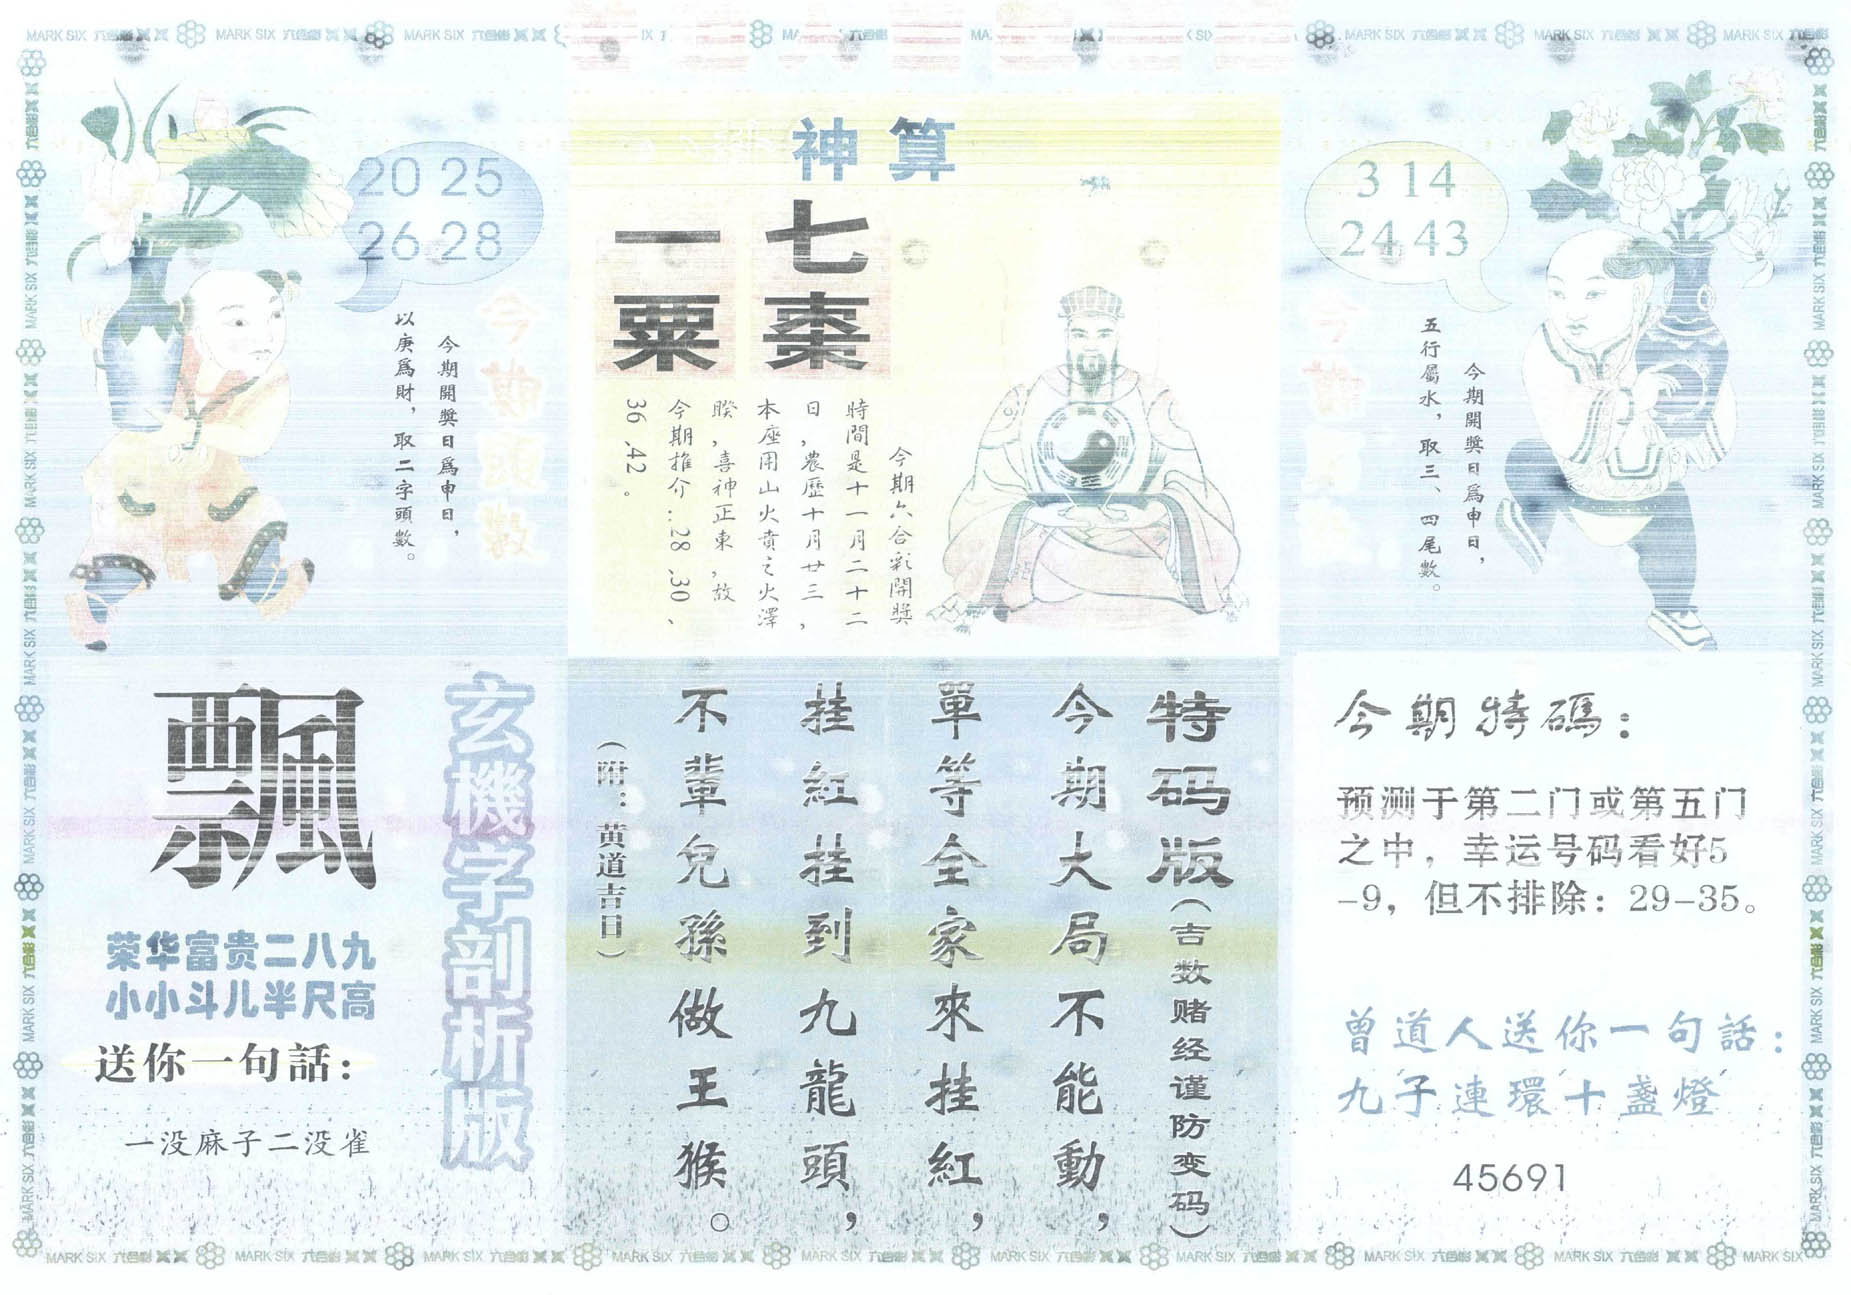 MARK SIX 六合彩
神算
七枣
一粟
今期六合彩開獎
時間是十一月二十二
日,農歷十月廿三,
本座用山火賁之火澤
睽,喜神正東,故
今期推介:28、30、
36、42。
20 25
26 28
今期頭數
今期開獎日爲申日,
以庚爲財,取二字頭數。
3 14
24 43
今期開獎日爲申日,
五行屬水,取三、四尾數。
玄機字剖析版
飄
荣华富贵二八九
小小斗儿半尺高
送你一句話:
一没麻子二没雀
特码版(吉数赌经谨防变码)
今期大局不能動,
單等全家來挂紅,
挂紅挂到九龍頭,
不輩兒孫做王猴。
(附:黄道吉日)
今期特碼:
预测于第二门或第五门
之中,幸运号码看好5
-9,但不排除:29-35。
曾道人送你一句話:
九子連環十盞燈
45691